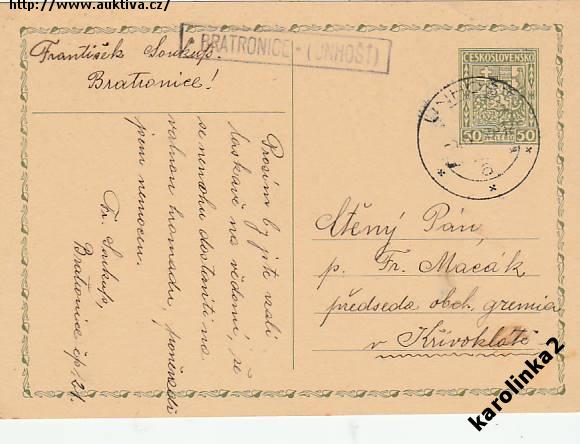 http://www.auktiva.cz/
František Soukup.
Bratronice!
BRATRONICE - (UNHOŠŤ)
ČESKOSLOVENSKO
50 50
UNHOŠŤ
Prosím by jste vzali
laskavě na vědomí, že
se nemohu dostaviti na
valnou hromadu, poněvadž
jsem nemocen.
Fr. Soukup,
Bratronice čp 121.
Ctěný Pán,
p. Fr. Macák
předseda obch. gremia
v Křivoklátě
karolinka2